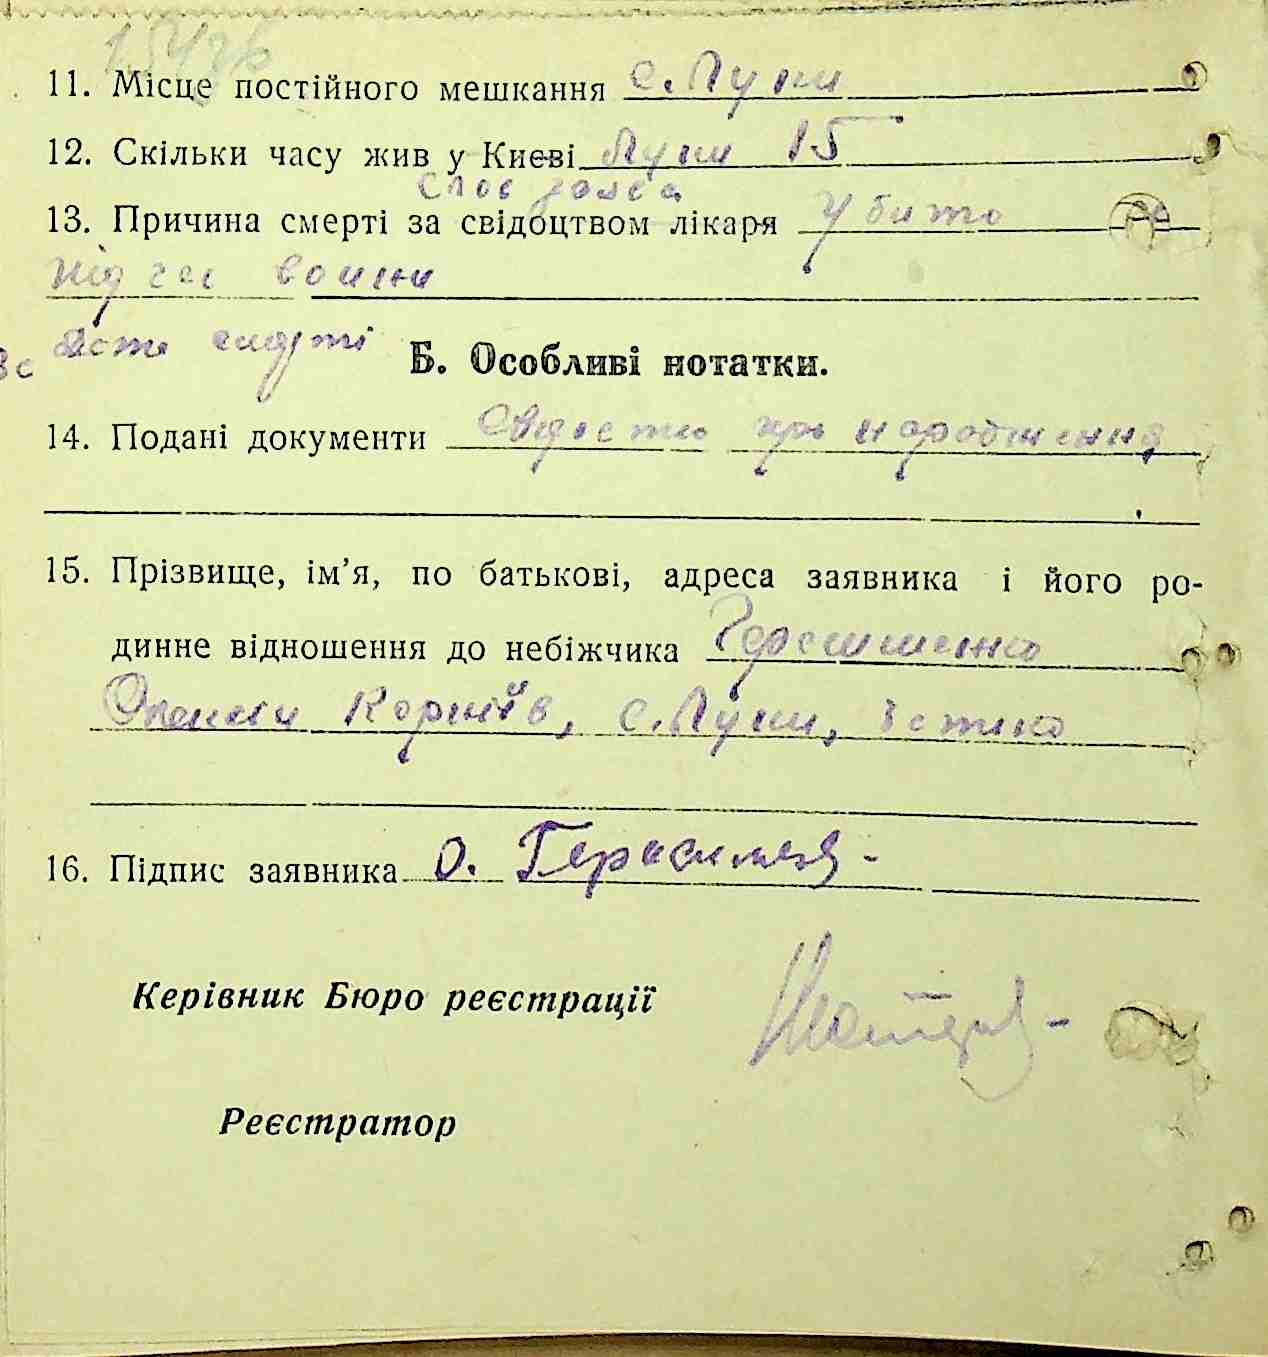 11. Місце постійного мешкання с. Луки
12. Скільки часу жив у Києві Луки 15
13. Причина смерті за свідоцтвом лікаря Убито
під час воини
смерті
Б. Особливі нотатки.
14. Подані документи про народження
15. Прізвище, ім’я, по батькові, адреса заявника і його ро-
динне відношення до небіжчика Герасименко
Корніїв, с. Луки,
16. Підпис заявника О. Герасимен
Керівник Бюро реєстрації
Реєстратор